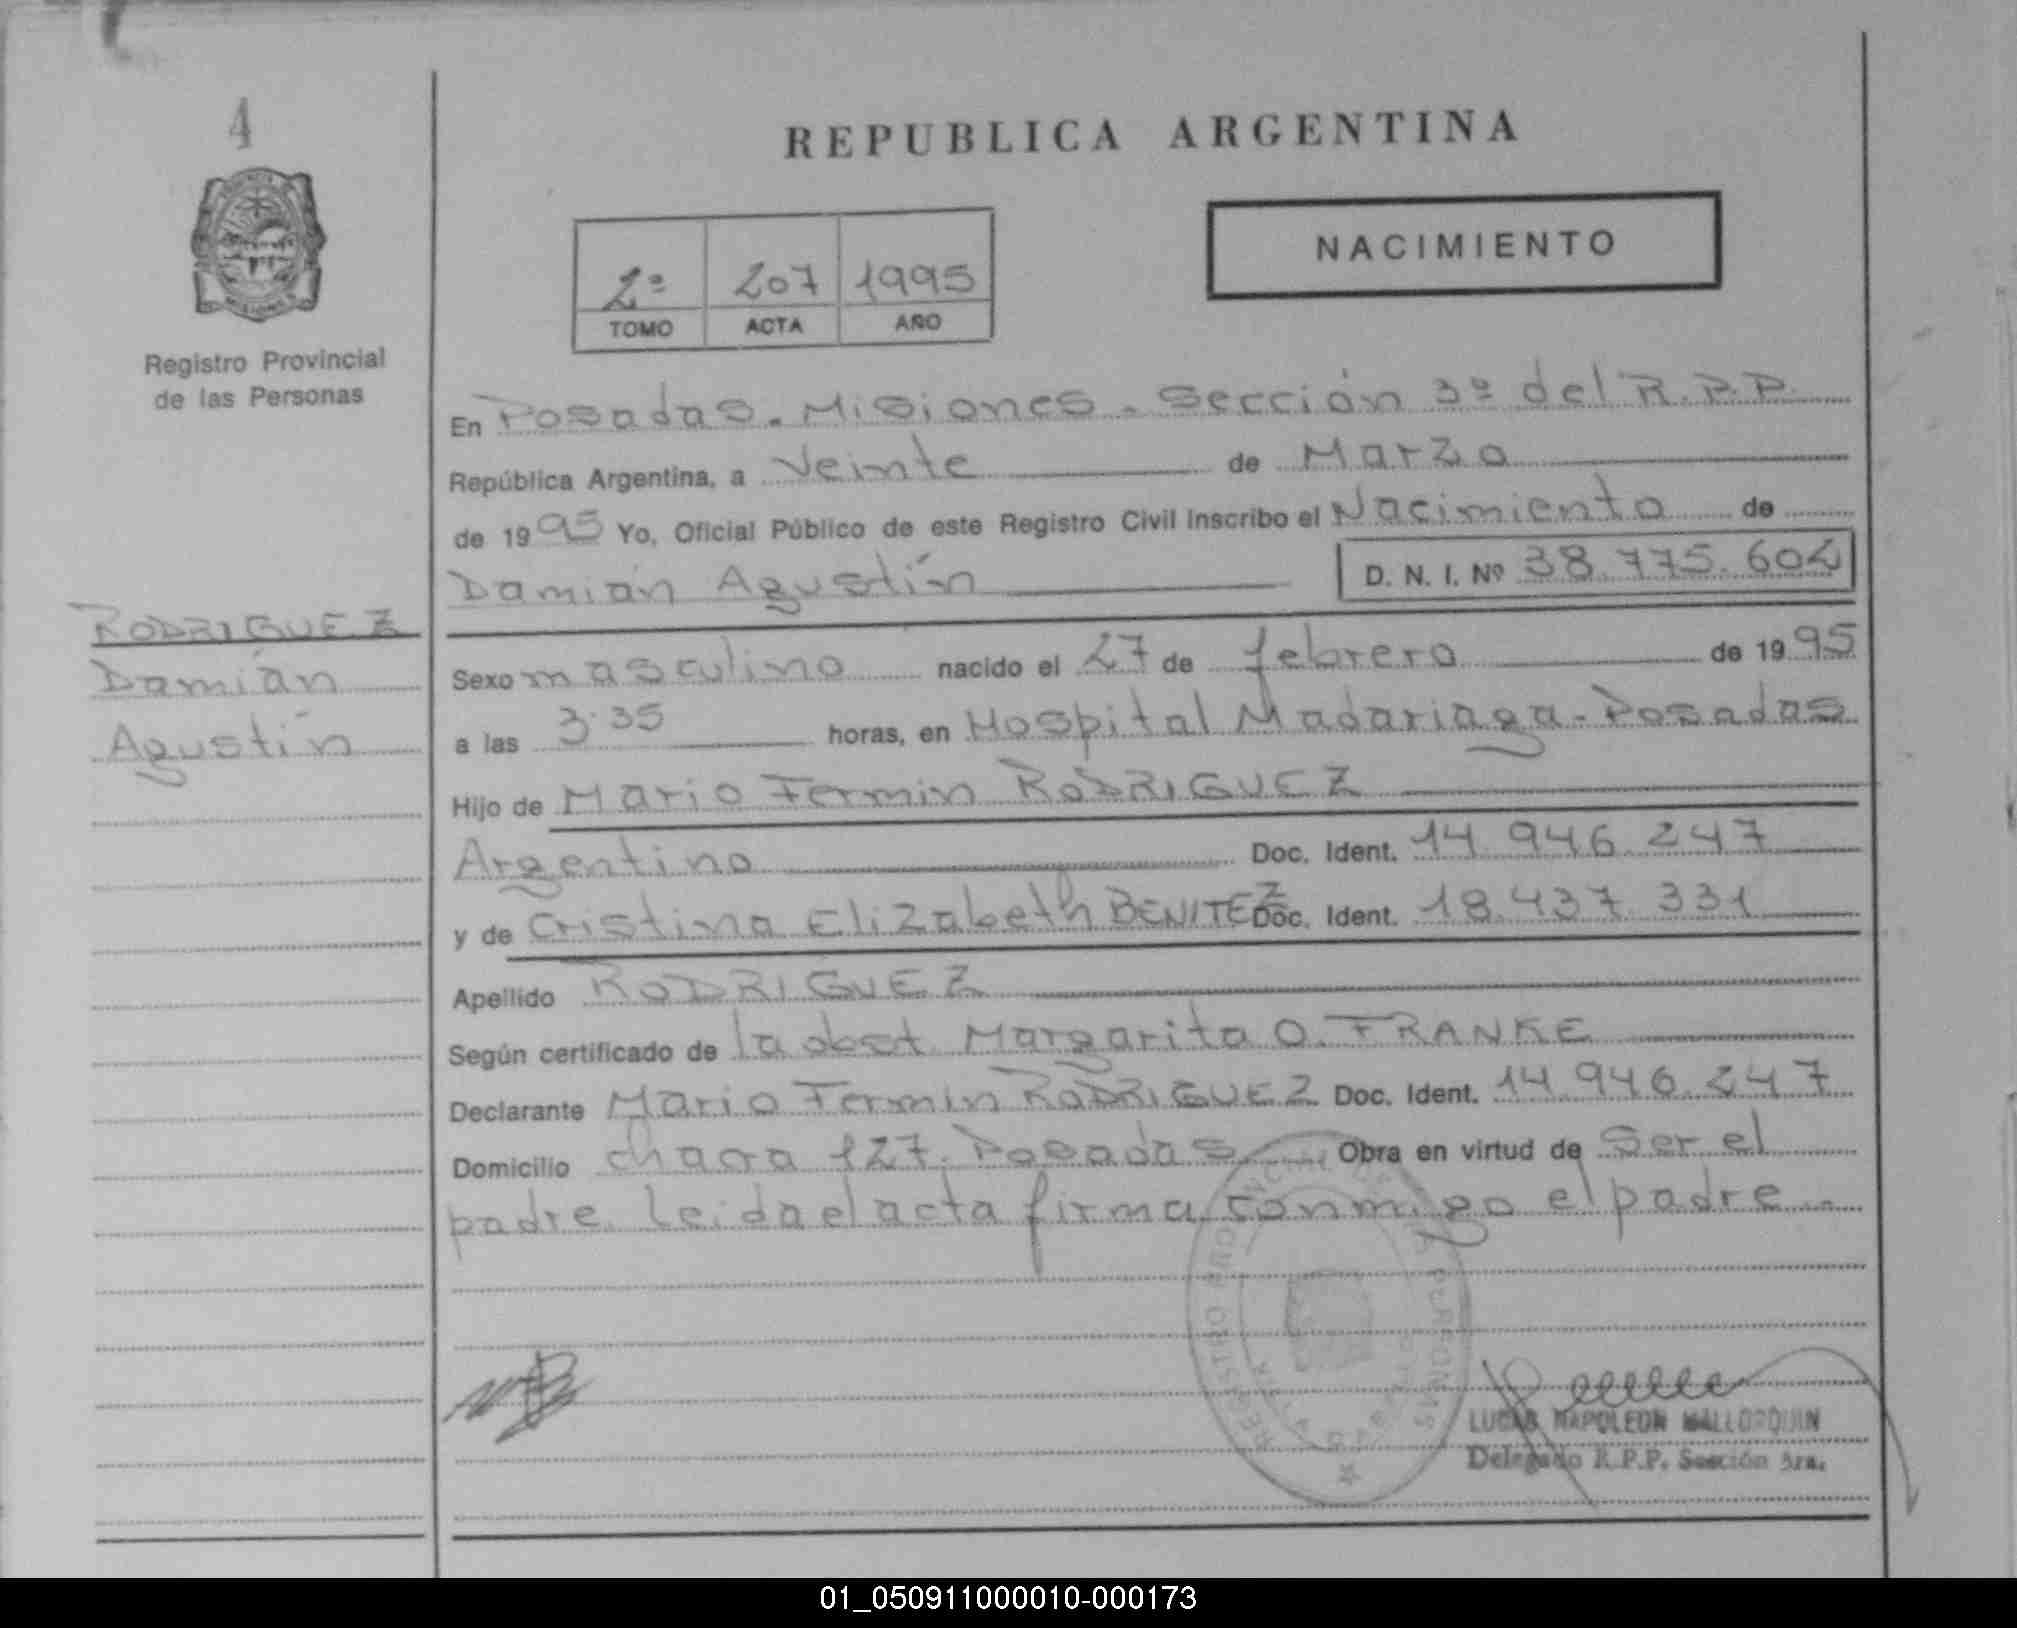 4
REPUBLICA ARGENTINA
NACIMIENTO
2º 207 1995
TOMO ACTA AÑO
Registro Provincial
de las Personas
En Posadas. Misiones. Sección 3º del R.P.P.
República Argentina, a Veinte de Marzo
de 1995 Yo, Oficial Público de este Registro Civil Inscribo el Nacimiento de
Damián Agustín D. N. I. Nº 38.775.604
RODRIGUEZ
Damián
Agustín
Sexo masculino nacido el 27 de febrero de 1995
a las 3.35 horas, en Hospital Madariaga - Posadas
Hijo de Mario Fermin RODRIGUEZ
Argentino Doc. Ident. 14.946.247
y de Cristina Elizabeth BENITEZ Doc. Ident. 18.437.331
Apellido RODRIGUEZ
Según certificado de la obst. Margarita O. FRANKE
Declarante Mario Fermin RODRIGUEZ Doc. Ident. 14.946.247
Domicilio chacra 127. Posadas Obra en virtud de Ser el
padre. Leida el acta firma conmigo el padre.-
LUCAS NAPOLEON MALLORQUIN
Delegado R.P.P. Sección 3ra.
01_050911000010-000173